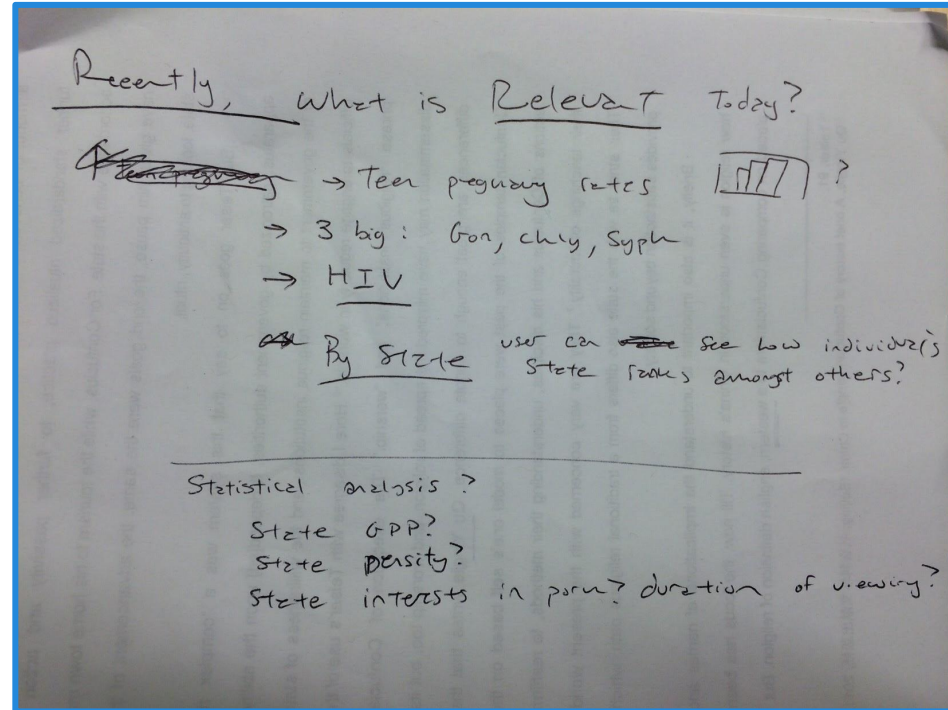 Recently, What is Relevant Today?
→ Teen pregnancy rates ?
→ 3 big : Gon, chly, Syph
→ HIV
By State user can see how individual's
State ranks amongst others?
Statistical analysis ?
State GPP?
State Density?
State intersts in porn? duration of viewing?